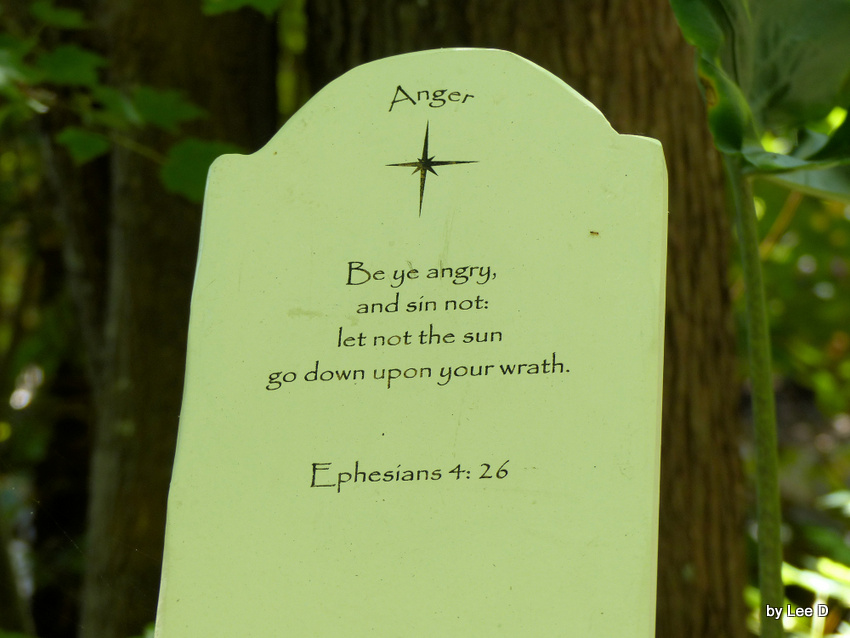 Anger
Be ye angry,
and sin not:
let not the sun
go down upon your wrath.
Ephesians 4: 26
by Lee D